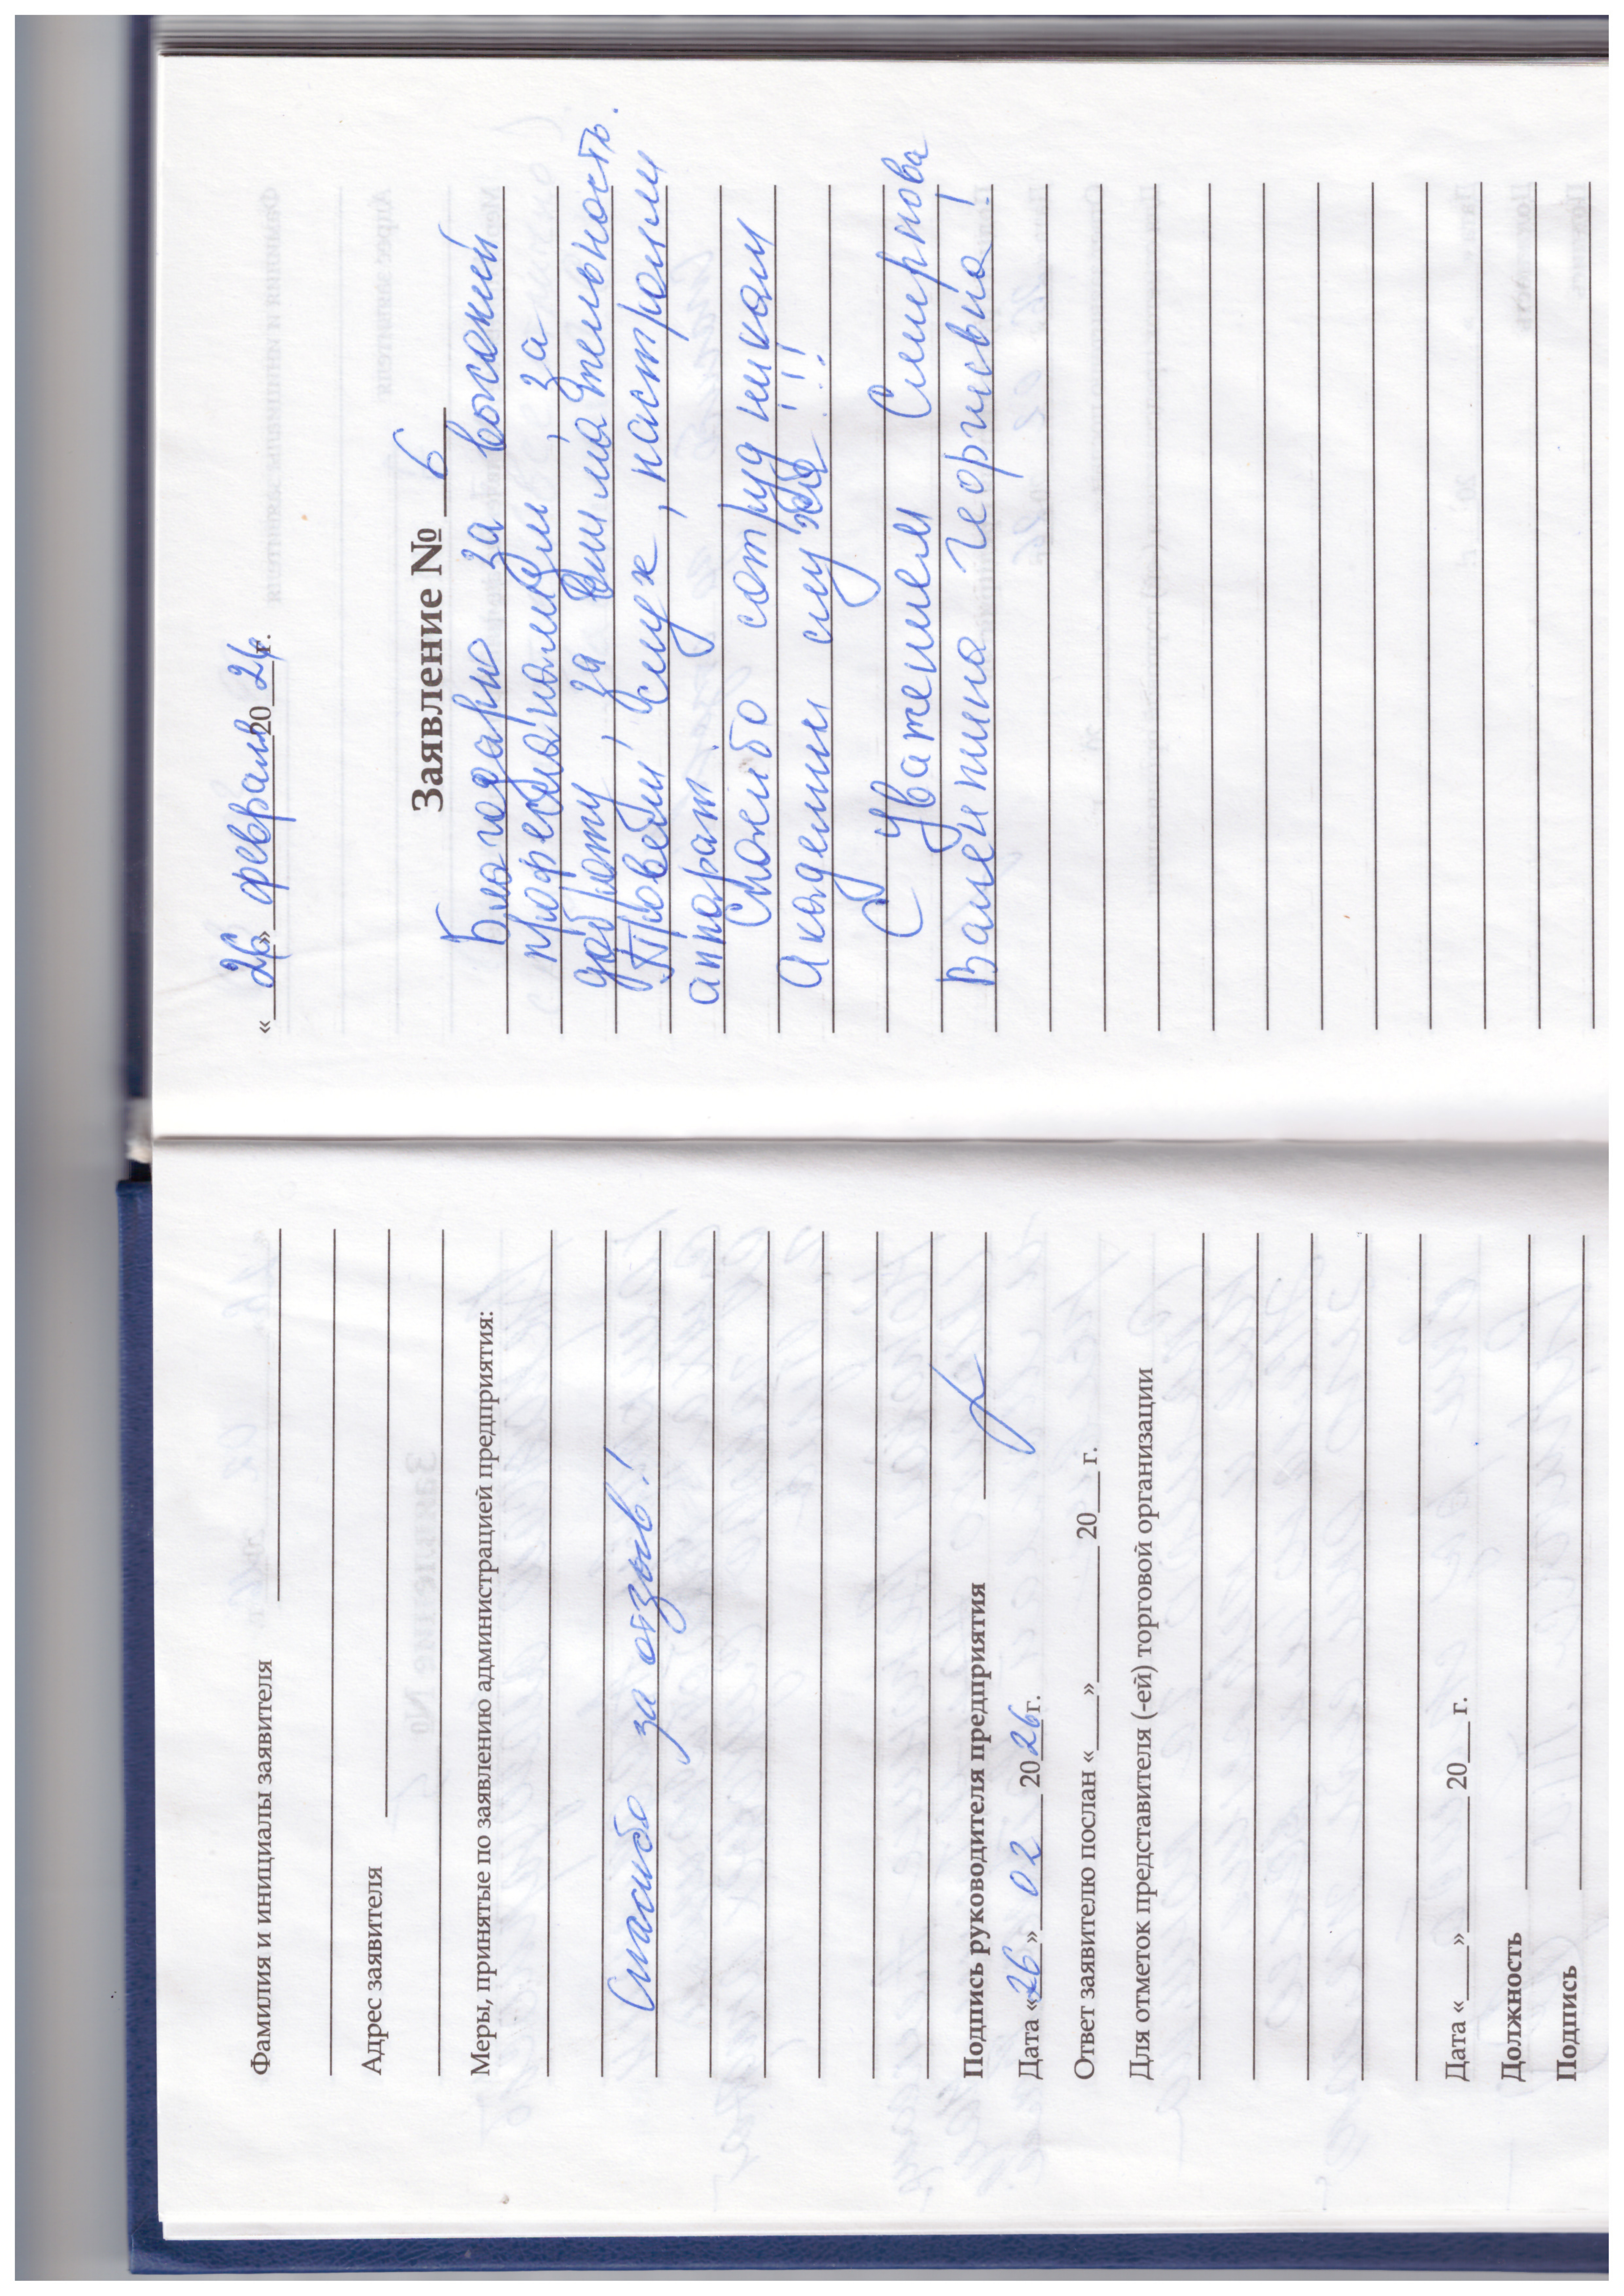 Фамилия и инициалы заявителя
Адрес заявителя
Меры, принятые по заявлению администрацией предприятия:
Спасибо за отзыв!
Подпись руководителя предприятия
Дата «26» 02 2026г.
Ответ заявителю послан «___»______ 20___ г.
Для отметок представителя (-ей) торговой организации
Дата «___»______ 20___ г.
Должность
Подпись
«26» февраля 2026 г.
Заявление № 6
Благодарю за высокий
профессионализм, за
доброту, за внимательность.
Провели слух, настроили
аппарат.
Спасибо сотрудникам
Академии слуха!!!
С уважением Смирнова
Валентина Георгиевна!